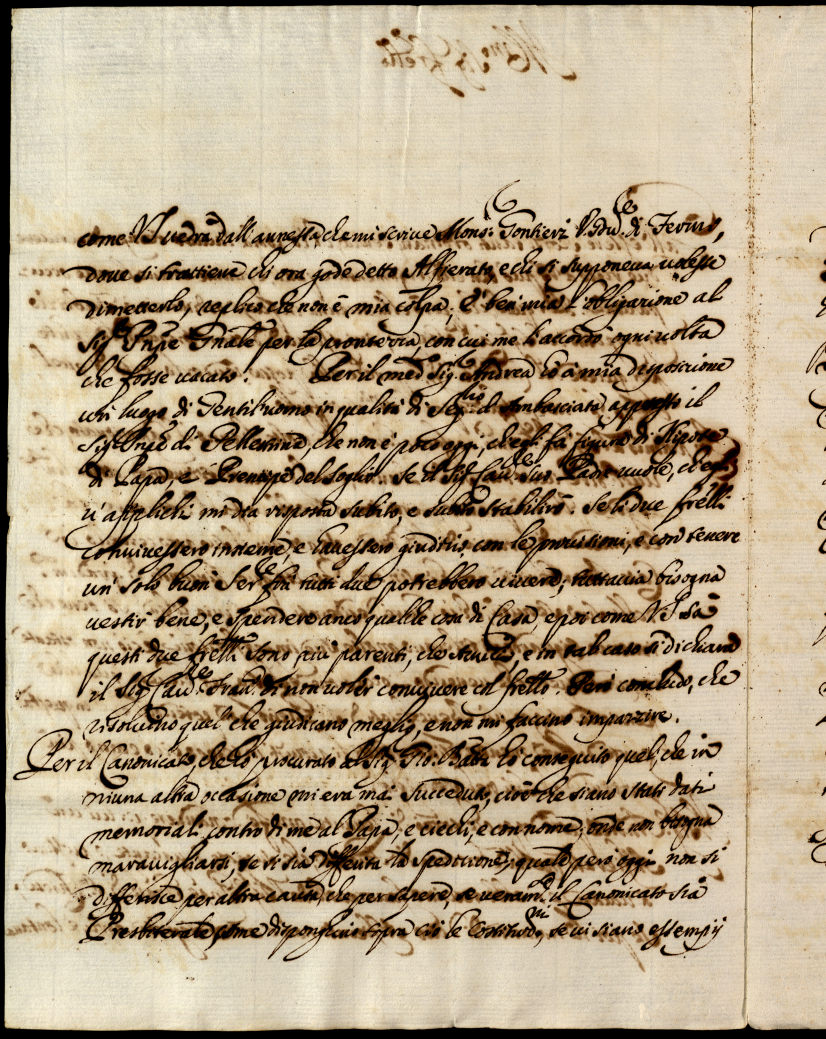 come VS uedrà dall'annessa che mi scriue Mons.r Gontieri V. di Fermo,
doue si trattiene chi ora gode detto Alfierato, e chi si supponeua uolesse
dimetterlo, replico che non è mia colpa; È ben mia l'obligazione al
Sig.r Pñpe Gnãle per la prontezza, con cui me l'accordò ogni uolta
che fosse uacato. Per il med.o Sig.r Andrea hò à mia disposizione
un luogo di Gentilhuomo in qualità di Seg.rio d'Ambasciate appresso il
Sig.r Pñpe di Pellestrina, che non è poco oggi, ch'egli fà figura di Nipote
di Papa, e Prencipe del Soglio. Se il Sig.r Cau.re suo Padre uuole, ch'egli
u'applichi mi dia risposta subito, e subito stabilirò. Se li due frelli
conuiuessero insieme, e hauessero giuditio, con le prouisioni, e con tenere
un solo buon Ser.re frà tutti due potrebbero uiuere; tuttauia bisogna
uestir bene, e spendere anco qualche cosa di Casa, e poi come VS sà
questi due frelli sono più parenti, che Amici, e in tal caso si dichiarò
il Sig.r Cau.re Fran.co di non uoler conuiuere col frello. Però concludo, che
risoluino quel che giudicano meglio, e non mi faccino impazzire.
Per il Canonicato, che hò procurato al Sig.r Gio. Batta hò conseguito quel, che in
niuna altra occasione mi era mai succeduto, cioè che siano stati dati
memoriali contro di me al Papa, e ciechi, e con nome, onde non bisogna
marauigliarsi, se si sia differita la spedizione, quale però oggi non si
differisce per altra causa, che per sapere, se ueram.te il Canonicato sia
Presbiterale, come dispongono sopra ciò le Costituz.ni, se ui siano essempij